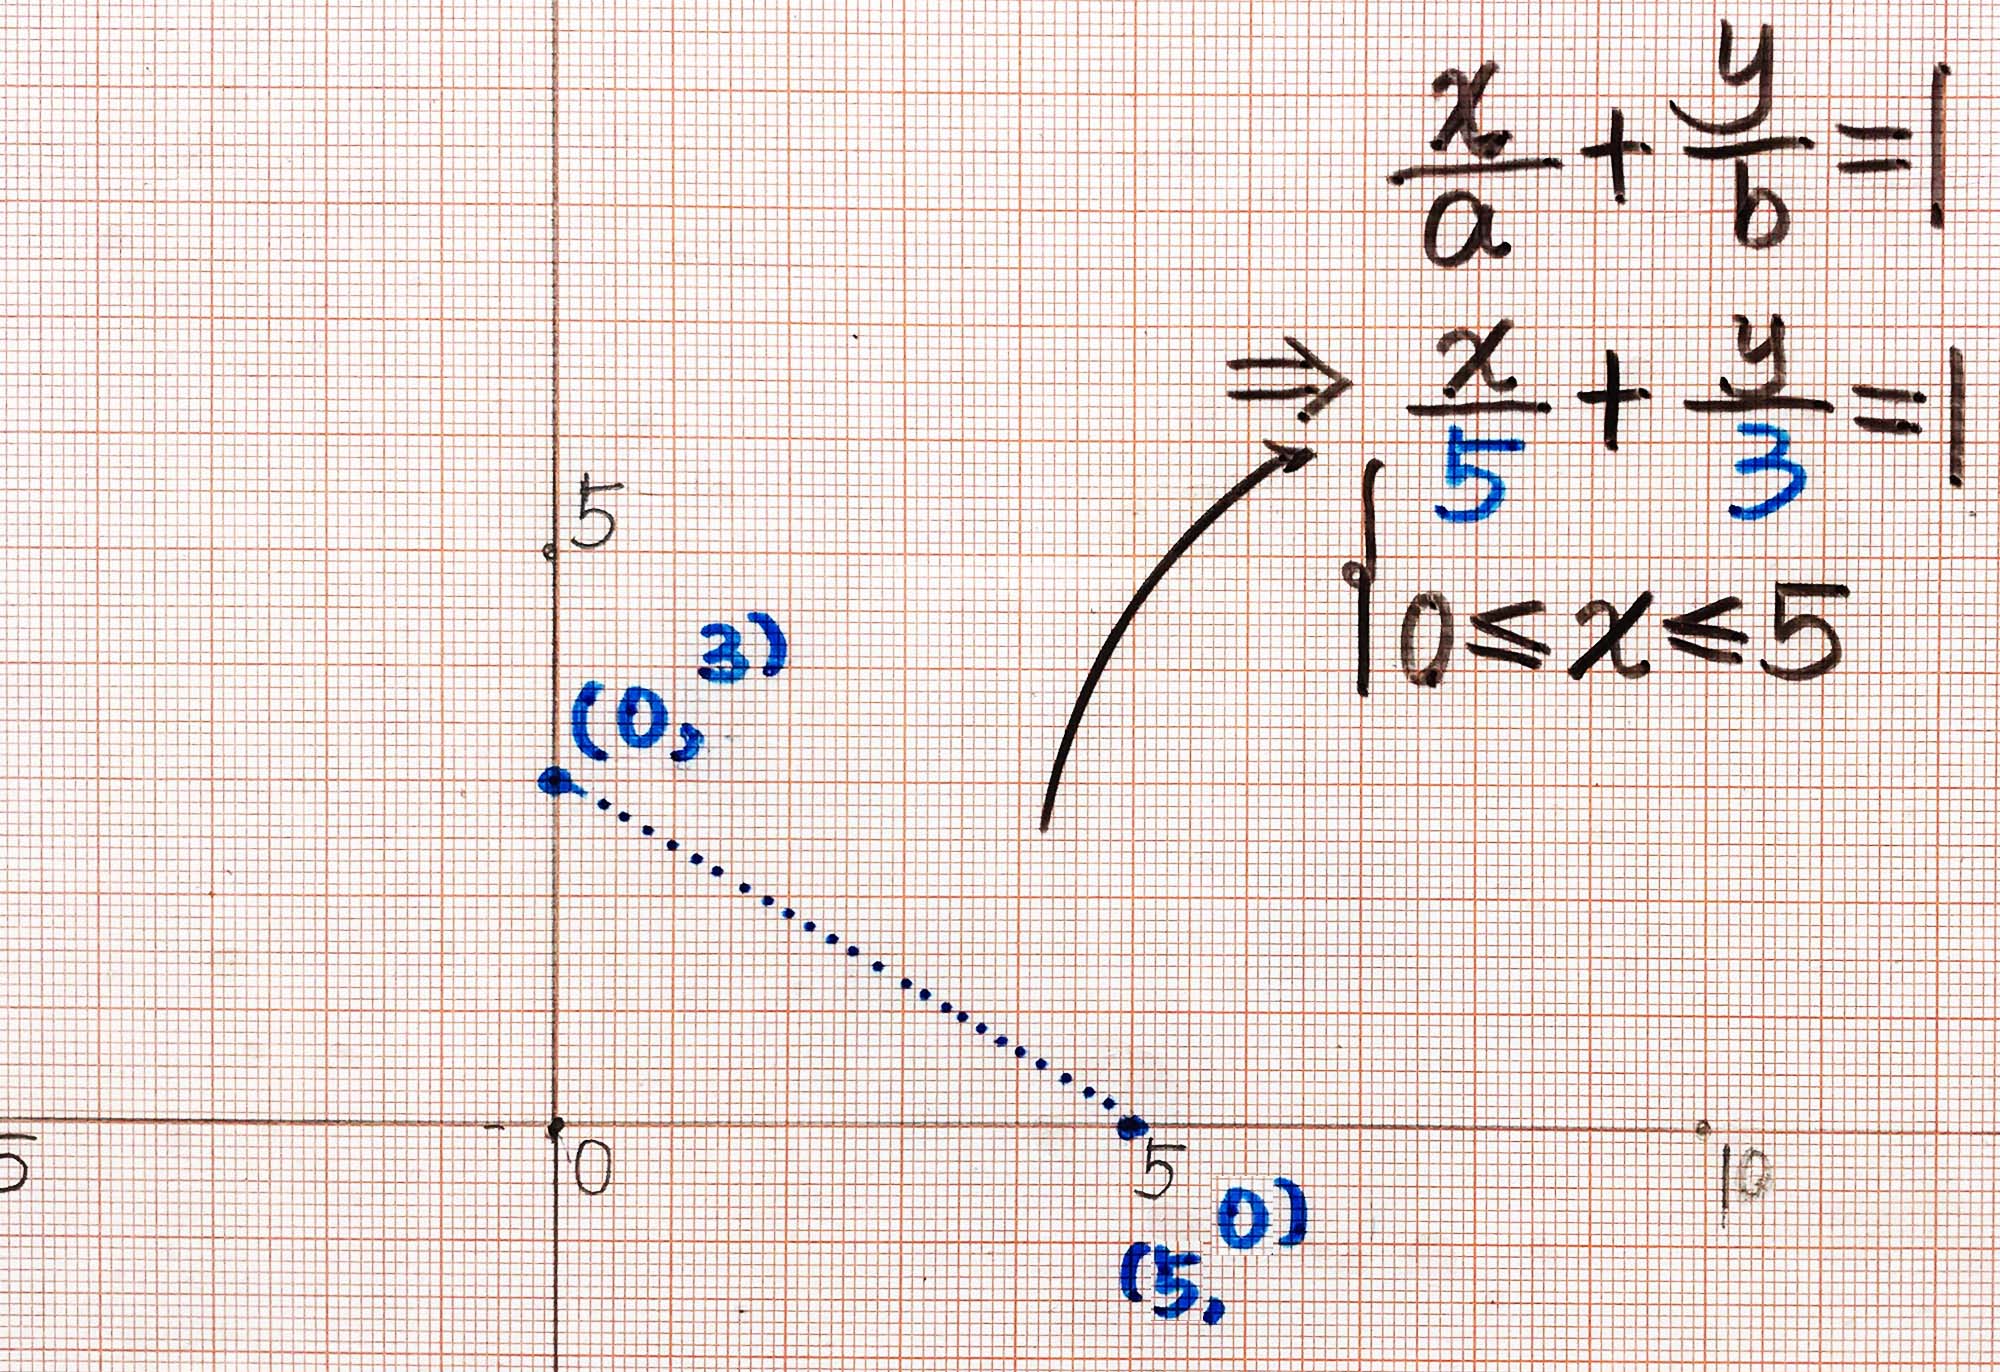 x/a + y/b = 1
⇒ x/5 + y/3 = 1
0 ≤ x ≤ 5
5
(0, 3)
5 0 5 10
(5, 0)